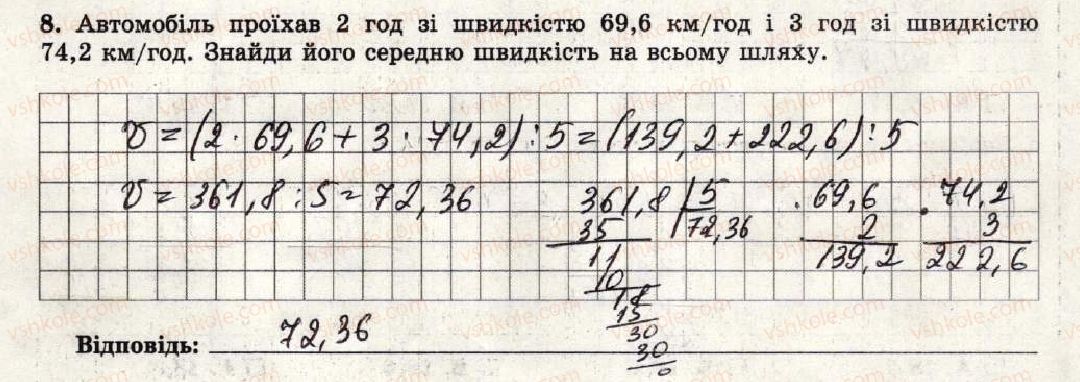 8. Автомобіль проїхав 2 год зі швидкістю 69,6 км/год і 3 год зі швидкістю
74,2 км/год. Знайди його середню швидкість на всьому шляху.
v = (2 · 69,6 + 3 · 74,2) : 5 = (139,2 + 222,6) : 5
v = 361,8 : 5 = 72,36
361,8 | 5
35 | 72,36
11
10
18
15
30
30
0
· 69,6
2
139,2
· 74,2
3
222,6
Відповідь: 72,36